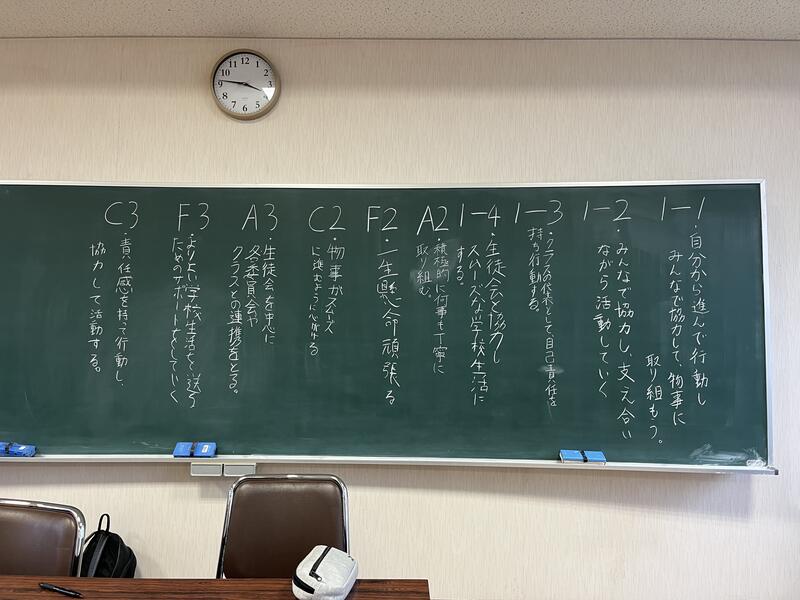 1-1
・自分から進んで行動し
みんなで協力して、物事に
取り組もう。
1-2
・みんなで協力し、支え合い
ながら活動していく
1-3
・クラスの代表として自己責任を
持ち行動する。
1-4
・生徒会と協力し
スムーズな学校生活に
する。
A2
積極的に何事も丁寧に
取り組む。
F2
・一生懸命頑張る
C2
・物事がスムーズ
に進むように心がける
A3
・生徒会を中心に
各委員会や
クラスとの連携をとる。
F3
・よりよい学校生活を送る
ためのサポートをしていく
C3
・責任感を持って行動し、
協力して活動する。
12
1
2
3
4
5
6
7
8
9
10
11